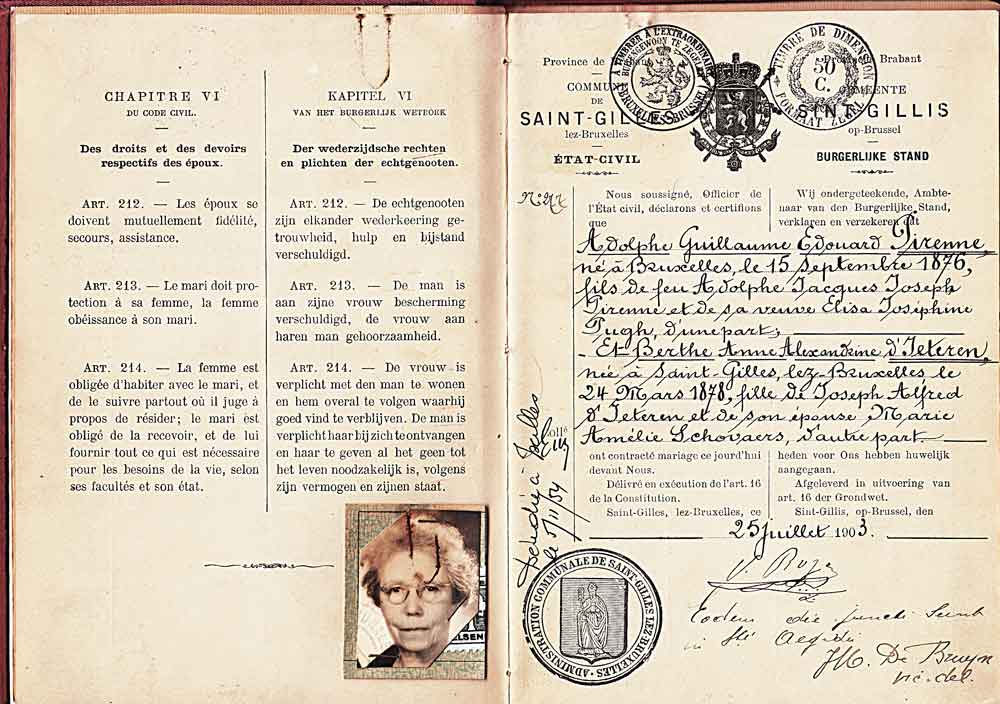 CHAPITRE VI
DU CODE CIVIL.
Des droits et des devoirs
respectifs des époux.
ART. 212. — Les époux se
doivent mutuellement fidélité,
secours, assistance.
ART. 213. — Le mari doit pro-
tection à sa femme, la femme
obéissance à son mari.
ART. 214. — La femme est
obligée d'habiter avec le mari, et
de le suivre partout où il juge à
propos de résider; le mari est
obligé de la recevoir, et de lui
fournir tout ce qui est nécessaire
pour les besoins de la vie, selon
ses facultés et son état.
KAPITEL VI
VAN HET BURGERLIJK WETBOEK
Der wederzijdsche rechten
en plichten der echtgenooten.
ART. 212. — De echtgenooten
zijn elkander wederkeering ge-
trouwheid, hulp en bijstand
verschuldigd.
ART. 213. — De man is
aan zijne vrouw bescherming
verschuldigd, de vrouw aan
haren man gehoorzaamheid.
ART. 214. — De vrouw is
verplicht met den man te wonen
en hem overal te volgen waarhij
goed vind te verblijven. De man is
verplicht haar bij zich te ontvangen
en haar te geven al het geen tot
het leven noodzakelijk is, volgens
zijn vermogen en zijnen staat.
ELSENE
Province de Brabant
COMMUNE
DE
SAINT-GILLES
lez-Bruxelles
ÉTAT-CIVIL
A TIMBRER A L'EXTRAORDINAIRE
BUITENGEWOON TE ZEGELEN
BRUXELLES-BRUSSEL
TIMBRE DE DIMENSION
50
C.
FORMAAT ZEGEL
Brabant
GEMEENTE
SINT-GILLIS
op-Brussel
BURGERLIJKE STAND
Nous soussigné, Officier de
l'État civil, déclarons et certifions
que
Wij ondergeteekende, Ambte-
naar van den Burgerlijke Stand,
verklaren en verzekeren dat
Adolphe Guillaume Edouard Pirenne,
né à Bruxelles, le 15 Septembre 1876,
fils de feu Adolphe Jacques Joseph
Pirenne et de sa veuve Elisa Joséphine
Pugh, d'une part;
Et Berthe Anne Alexandrine d'Ieteren,
née à Saint-Gilles, lez-Bruxelles le
24 Mars 1878, fille de Joseph Alfred
d'Ieteren et de son épouse Marie
Amélie Schovaers, d'autre part.
ont contracté mariage ce jourd'hui
devant Nous.
Délivré en exécution de l'art. 16
de la Constitution.
Saint-Gilles, lez-Bruxelles, ce
heden voor Ons hebben huwelijk
aangegaan.
Afgeleverd in uitvoering van
art. 16 der Grondwet.
Sint-Gillis, op-Brussel, den
25 juillet 1903.
décédée à Ixelles
le 5/11/54
ADMINISTRATION COMMUNALE DE SAINT-GILLES LEZ-BRUXELLES
Eodem die juncti sunt
in St Aegidii
De Bruyn
vic. del.